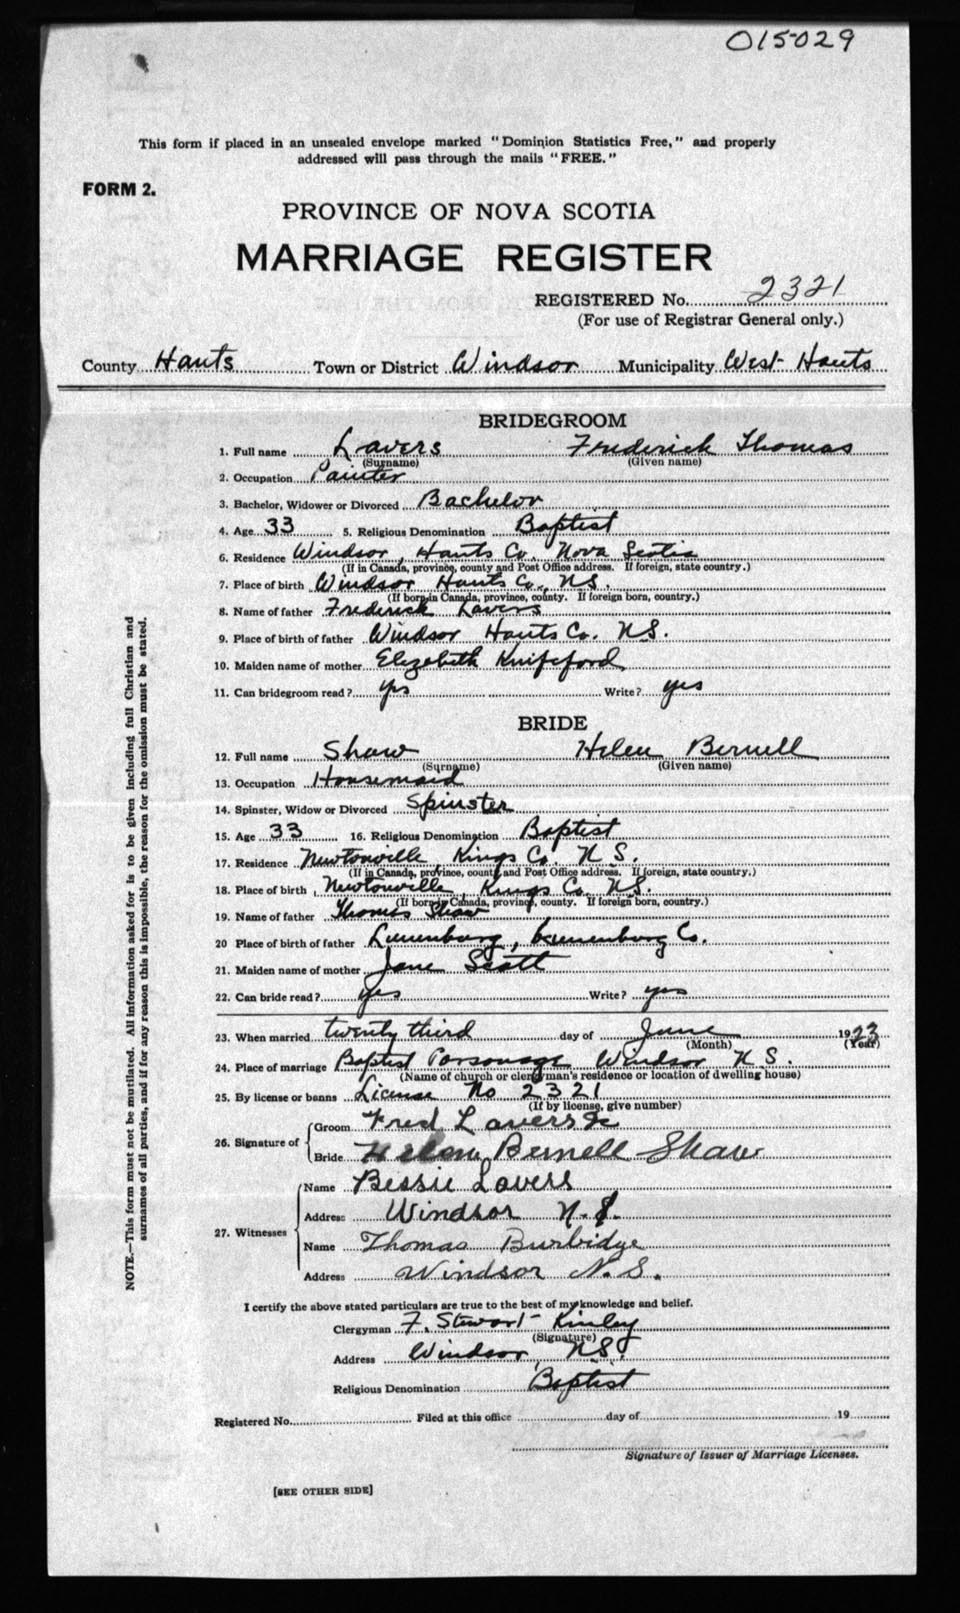 015029
This form if placed in an unsealed envelope marked "Dominion Statistics Free," and properly
addressed will pass through the mails "FREE."
FORM 2.
PROVINCE OF NOVA SCOTIA
MARRIAGE REGISTER
REGISTERED No. 2321
(For use of Registrar General only.)
County Hants Town or District Windsor Municipality West Hants
BRIDEGROOM
1. Full name Lavers Frederick Thomas
(Surname) (Given name)
2. Occupation Painter
3. Bachelor, Widower or Divorced Bachelor
4. Age 33 5. Religious Denomination Baptist
6. Residence Windsor, Hants Co. Nova Scotia
(If in Canada, province, county and Post Office address. If foreign, state country.)
7. Place of birth Windsor Hants Co., N.S.
(If born in Canada, province, county. If foreign born, country.)
8. Name of father Frederick Lavers
9. Place of birth of father Windsor Hants Co. N.S.
10. Maiden name of mother Elizabeth Knifeford
11. Can bridegroom read? yes Write? yes
BRIDE
12. Full name Shaw Helen Bernell
(Surname) (Given name)
13. Occupation Housemaid
14. Spinster, Widow or Divorced Spinster
15. Age 33 16. Religious Denomination Baptist
17. Residence Newtonville, Kings Co. N.S.
(If in Canada, province, county and Post Office address. If foreign, state country.)
18. Place of birth Newtonville, Kings Co. N.S.
(If born in Canada, province, county. If foreign born, country.)
19. Name of father Thomas Shaw
20 Place of birth of father Lunenburg, Lunenburg Co.
21. Maiden name of mother Jane Scott
22. Can bride read? yes Write? yes
23. When married twenty third day of June 1923
(Month) (Year)
24. Place of marriage Baptist Parsonage Windsor N.S.
(Name of church or clergyman's residence or location of dwelling house)
25. By license or banns License No 2321
(If by license, give number)
26. Signature of Groom Fred Lavers Jr
Bride Helen Bernell Shaw
27. Witnesses Name Bessie Lavers
Address Windsor N.S.
Name Thomas Burbidge
Address Windsor N.S.
I certify the above stated particulars are true to the best of my knowledge and belief.
Clergyman F. Stewart Kinley
(Signature)
Address Windsor N.S.
Religious Denomination Baptist
Registered No. Filed at this office day of 19
Signature of Issuer of Marriage Licenses.
[SEE OTHER SIDE]
NOTE.—This form must not be mutilated. All information asked for is to be given including full Christian and
surnames of all parties, and if for any reason this is impossible, the reason for the omission must be stated.